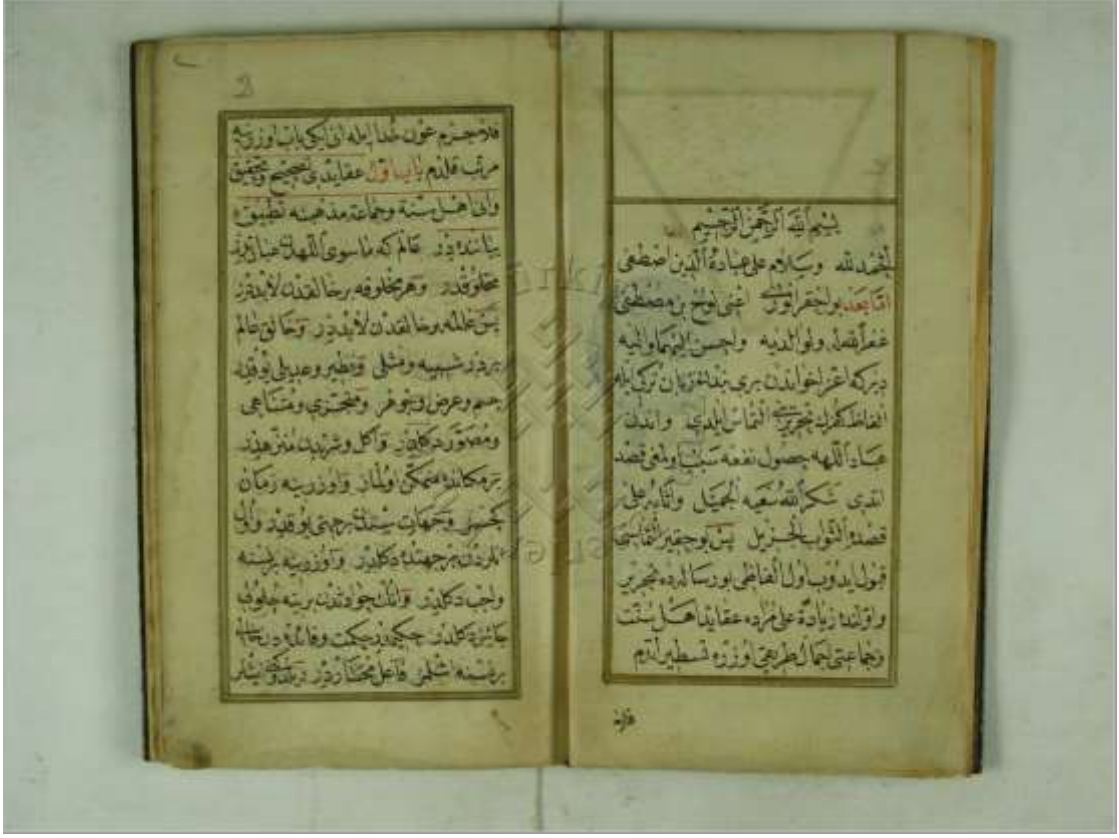 بسم الله الرحمن الرحيم
الحمد لله وسلام على عباده الذين اصطفى
اما بعد بو احقر الورى اعنى نوح بن مصطفى
غفر الله له ولوالديه واحسن اليهما واليه
ديركه اعز اخواندن برى بندن زبان تركى ايله
الفاظ كفرك تحريرينى التماس ايلدى واندن
عباد اللهه حصول نفعه سبب اولمغى قصد
ايتدى شكر الله سعيه الجميل واثابه على
قصده الثواب الجزيل پس بو حقير التماسنى
قبول ايدوب اول الفاظى بو رسالهده تحرير
واولنده زيادة على مراده عقايد اهل سنت
وجماعتى اجمال طريقى اوزره تسطير ايتدم
فلاجرم
2
فلاجرم عون خدا ايله انى ايكى باب اوزرينه
مرتب قلدم باب اول عقايدى تصحيح وتحقيق
وانى اهل سنة وجماعة مذهبنه تطبيق
بياننده در عالم كه ما سوى اللهدن عبارتدر
مخلوقدر وهر مخلوقه بر خالقدن لابددر
پس عالمه بر خالقدن لابددر وخالق عالم
بردر شبيه ومثلى ونظير وعديلى يوقدر
جسم وعرض وجوهر ومتحيزى ومتناهى
ومصور دكلدر واكل وشربدن منزهدر
بر مكانده متمكن اولماز واوزرينه زمان
كچمز وجهات ستهدن بر جهتى يوقدر واول
انلردن بر جهتده دكلدر واوزرينه بر نسنه
واجب دكلدر وانك حوادثدن برينه حلولى
جايز دكلدر حكيمدر حكمت وفائدهدن خالى
بر نسنه اشلمز فاعل مختاردر ديلدوكنى ايشلر